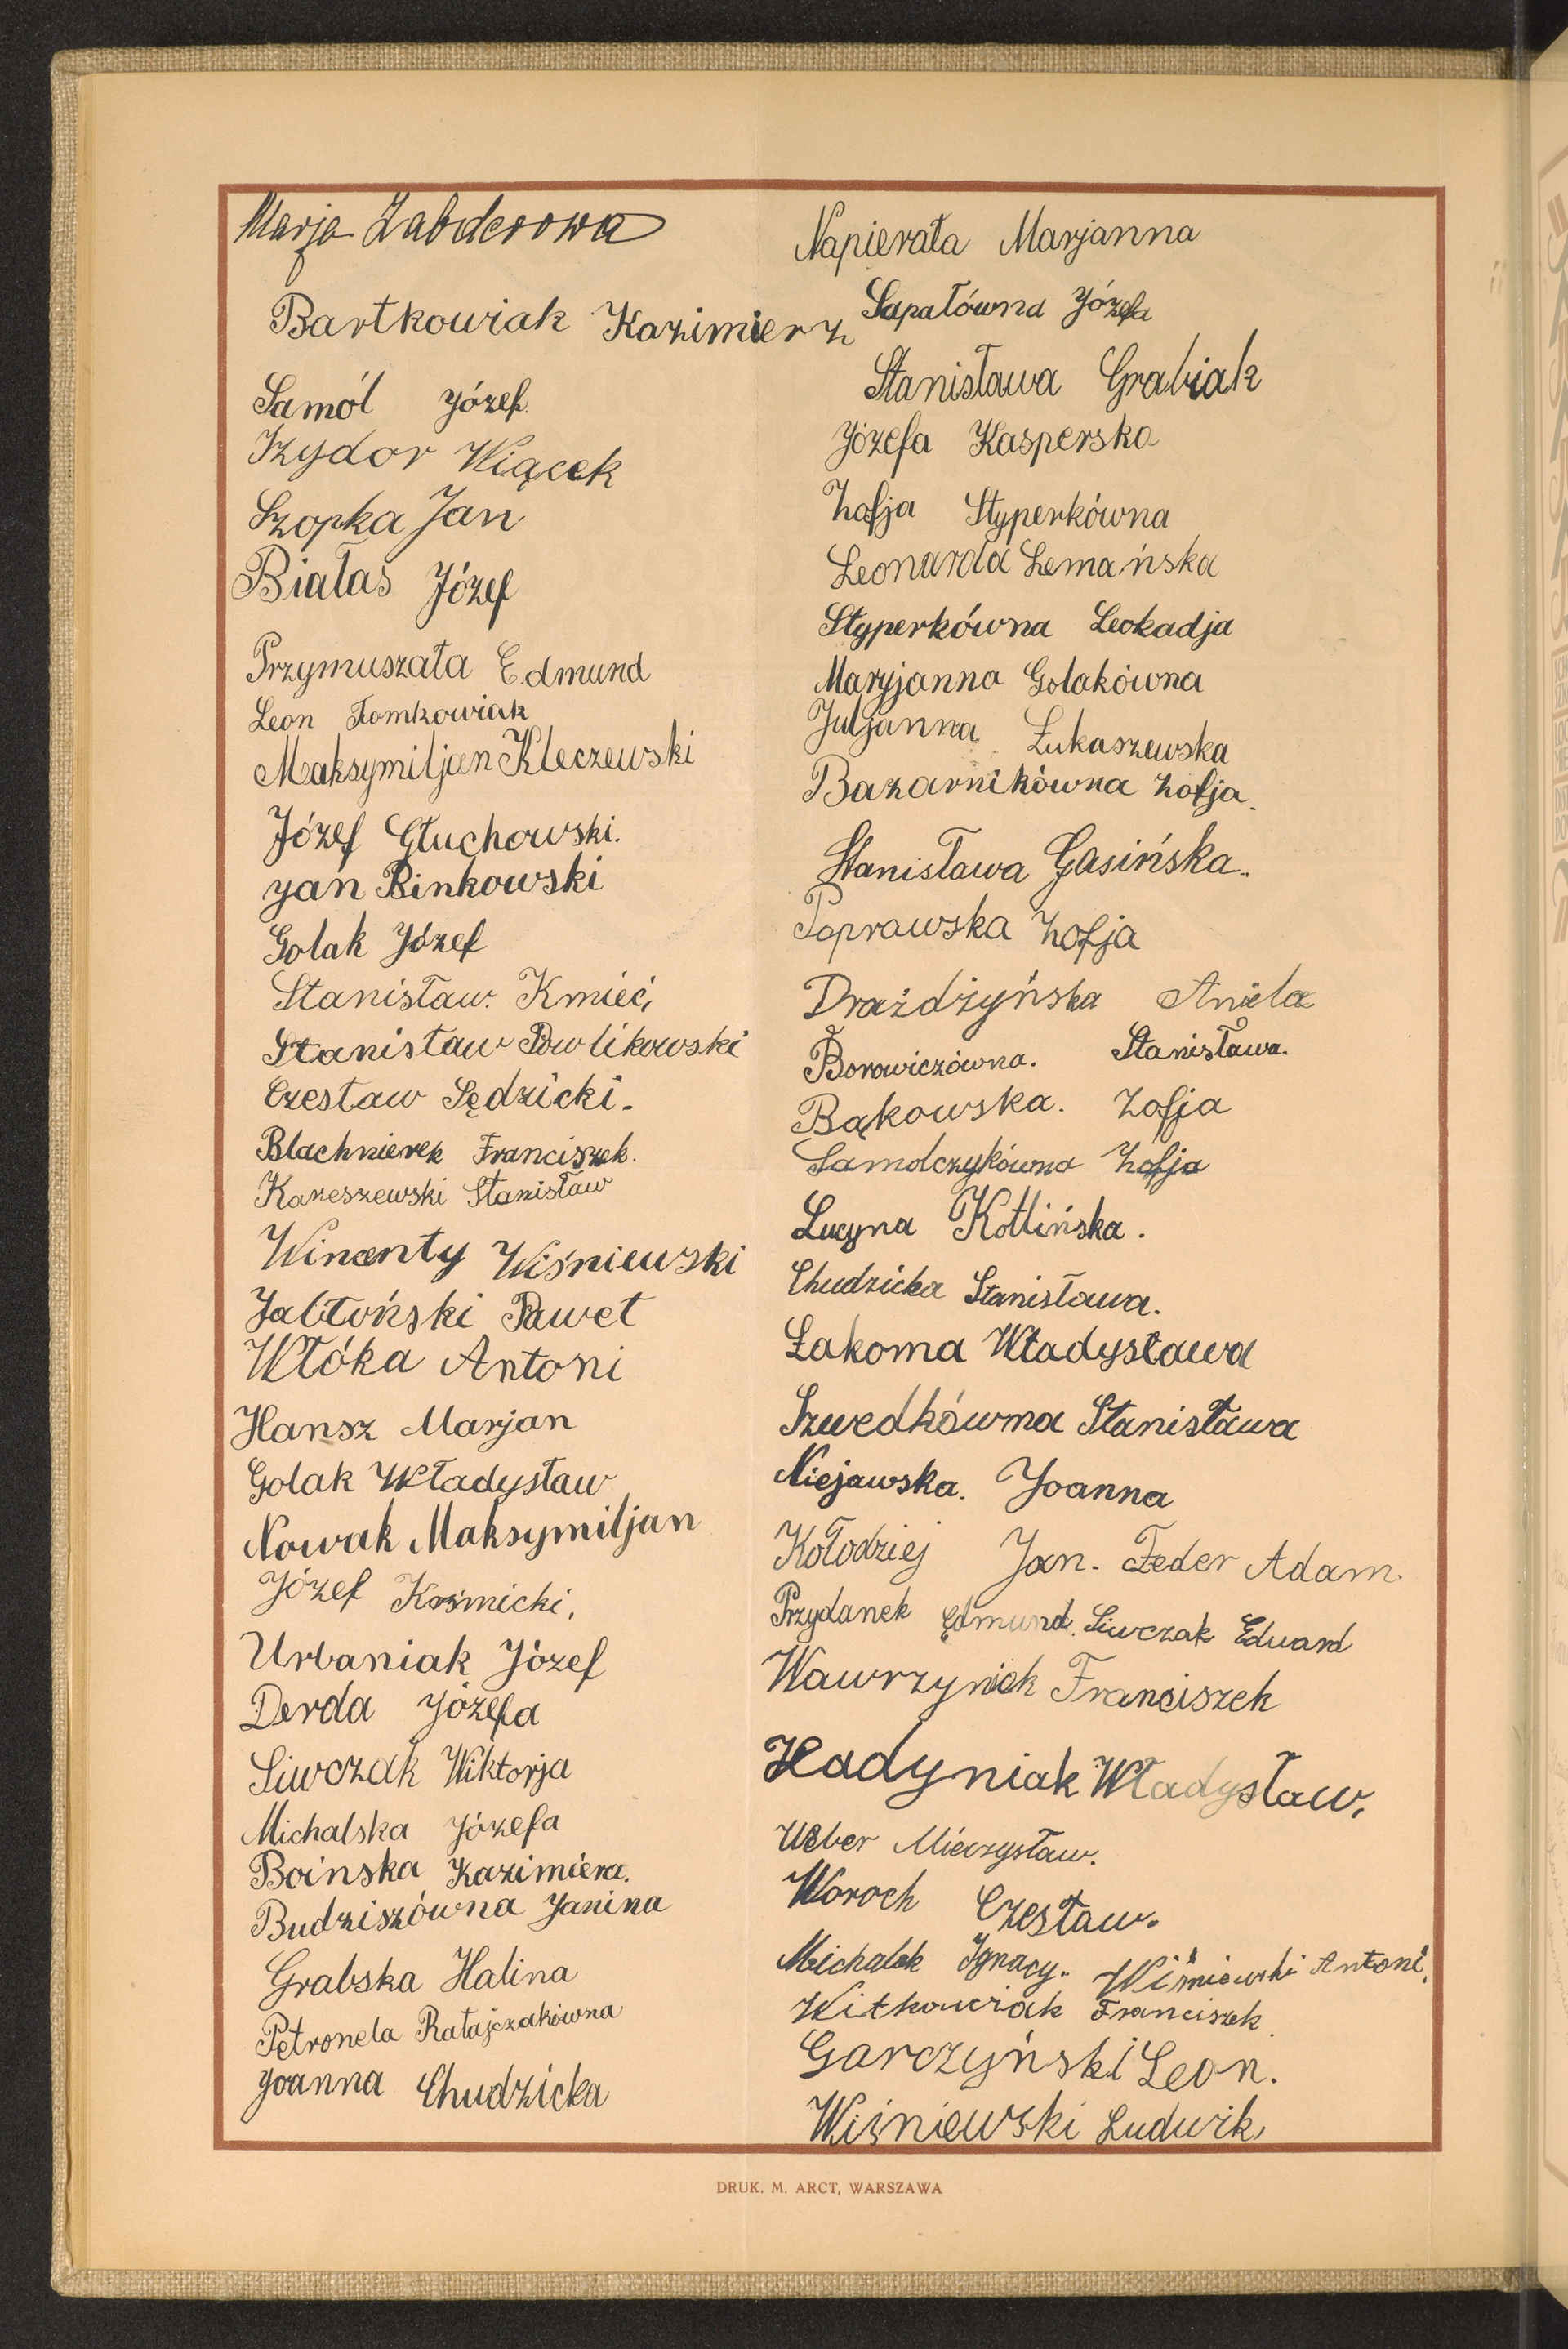 Marja Zabderowa
Bartkowiak Kazimierz
Samól Józef.
Izydor Wiącek
Szopka Jan
Białas Józef
Przymuszała Edmund
Leon Tomkowiak
Maksymiljan Kleczewski
Józef Głuchowski.
Jan Binkowski
Golak Józef
Stanisław Kmieć
Stanisław Powlikowski
Czesław Sędzicki.
Blachnierek Franciszek.
Kareszewski Stanisław
Wincenty Wiśniewski
Jabłoński Paweł
Włóka Antoni
Hansz Marjan
Golak Władysław
Nowak Maksymiljan
Józef Kośmicki.
Urbaniak Józef
Derda Józefa
Siwczak Wiktorja
Michalska Józefa
Boinska Kazimiera.
Budziszówna Janina
Grabska Halina
Petronela Ratajczakówna
Joanna Chudzicka
Napierała Marjanna
Sapałówna Józefa
Stanisława Grabiak
Józefa Kasperska
Zofja Styperkówna
Leonarda Lemańska
Styperkówna Leokadja
Maryjanna Golakówna
Juljanna Łukaszewska
Bazarnikówna Zofja.
Stanisława Gasińska..
Poprawska Zofja
Drażdżyńska Aniela
Borowiczówna. Stanisława.
Bąkowska. Zofja
Samolczykówna Zofja
Lucyna Kotlińska.
Chudzicka Stanisława.
Łakoma Władysława
Szwedkówna Stanisława
Niejawska. Joanna
Kołodziej Jan. Feder Adam.
Przydanek Edmund. Siwczak Eduard
Wawrzyniak Franciszek
Hadyniak Władysław,
Weber Mieczysław.
Woroch Czesław.
Michalak Ignacy. Wiśniewski Antoni,
Witkowiak Franciszek
Garczyński Leon.
Wiśniewski Ludwik,
DRUK. M. ARCT, WARSZAWA